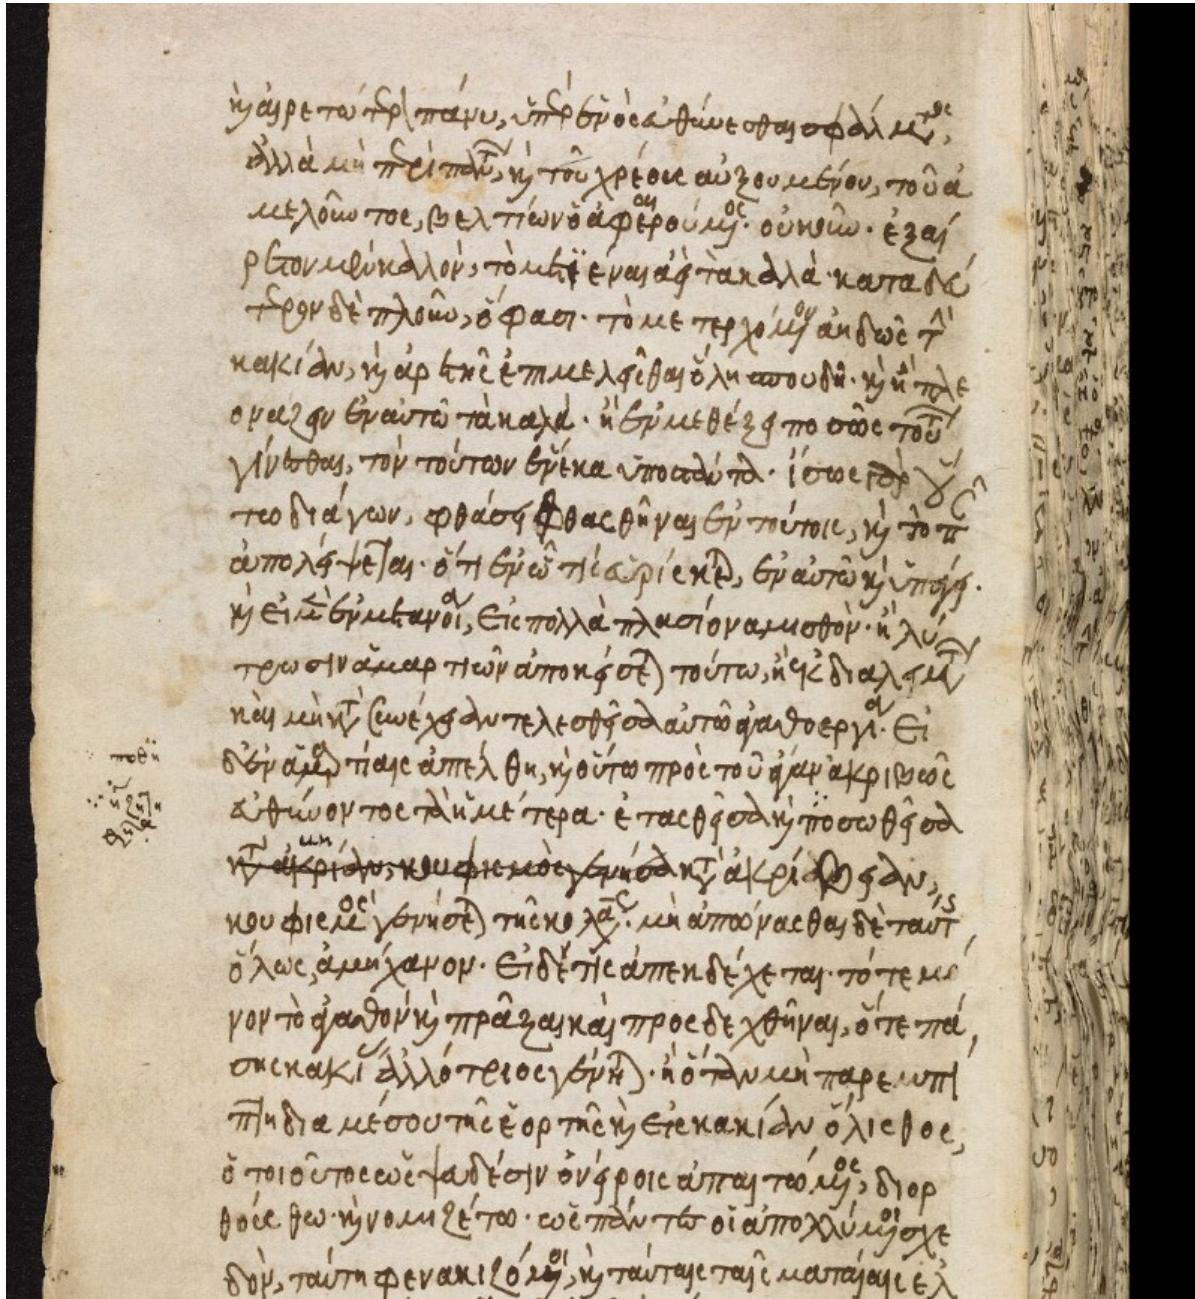 καὶ αἱρετώτερα πάνυ, ὑπὲρ ἑνὸς εὐθύνεσθαι σφάλματος,
ἀλλὰ μὴ περὶ πολλῶν, καὶ τοῦ χρέους αὐξουμένου, τοῦ ἀ
μελοῦντος, βελτίων ὁ ἀφαιρούμενος. οὐκοῦν. ἐξαί
ρετον μὲν καλλὸν, τὸ μετεῖναι ἀεὶ τὰ καλλά. κατὰ δεύ
τερον δὲ πλοῦν, ὅ φασι. τὸ μετερχόμενον ἀηδῶς τὴν
κακίαν, καὶ ἀρετῆς ἐπιμελεῖσθαι ὅλη σπουδῆ. καὶ ἢ πλε
ονάζειν ἐν αὐτῶ τὰ καλὰ. ἢ ἐν μεθέξει ποσῶς τούτων
γίνεσθαι, τὸν τούτων ἕνεκα ὑποστάντα. ἴσως γὰρ οὕ
τω διάγων, φθάσει φθασθῆναι ἐν τούτοις, καὶ τὸ πᾶν
ἀπολείψεται. ὅτι ἐν ᾧ τίς εὑρίσκεται, ἐν αὐτῶ καὶ ὑπάγει.
καὶ εἰ μὲν ἐν μετανοία, εἰς πολλαπλασίονα μισθὸν. ἢ λύ
τρωσιν ἁμαρτιῶν ἀποκείσεται τούτω, ἡ ἐκ διαλειμμάτων
καὶ μὴ κατὰ συνέχειαν τελεσθεῖσα αὐτῶ ἀγαθοεργία. Εἰ
δ' ἐν ἁμαρτίαις ἀπέλθη, καὶ οὕτω πρὸς τοῦ ἄγαν ἀκριβῶς
εὐθύνοντος τὰ ἡμέτερα. ἐτασθεῖσα καὶ ποσωθεῖσα
κατὰ ἀκρίβειαν,
κουφισμὸς γενήσεται τῆς κολάσεως. μὴ ἀπώνασθαι δὲ ταύτης,
ὅλως, ἀμήχανον. Εἰ δέ τις ἀπεκδέχεται. τότε μό
νον τὸ ἀγαθὸν καὶ πρᾶξαι καὶ προσδεχθῆναι, ὅτε πά
σης κακίας ἀλλότριος γένηται. ἢ ὅταν μὴ παρεμπί
πτη διαμέσου τῆς ἑορτῆς καὶ εἰς κακίαν ὄλισθος,
ὁ τοιοῦτος ὡς ψαδέσιν ὀνείροις ἀπατώμενος, διορ
θούσθω. καὶ νομιζέτω. ὡς πάντες οἱ ἀπολλύμενοι σχε
δὸν, ταύτη φενακιζόμενοι, καὶ ταύταις ταῖς ματαίαις ἐλ